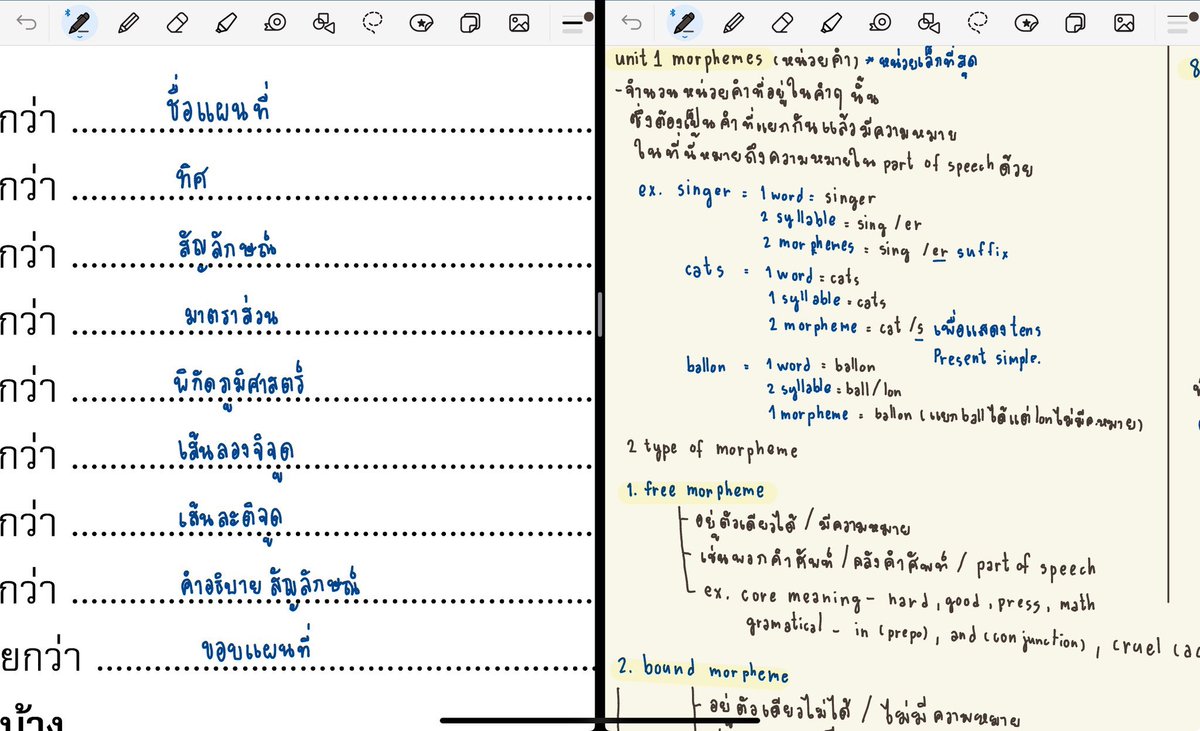 กว่า ชื่อแผนที่
กว่า ทิศ
กว่า สัญลักษณ์
กว่า มาตราส่วน
กว่า พิกัดภูมิศาสตร์
กว่า เส้นลองจิจูด
กว่า เส้นละติจูด
กว่า คำอธิบายสัญลักษณ์
ยกว่า ขอบแผนที่
บ้าง
unit 1 morphemes (หน่วยคำ) * หน่วยเล็กที่สุด
- จำนวนหน่วยคำที่อยู่ในคำๆ นั้น
ซึ่งต้องเป็นคำที่แยกกันแล้วมีความหมาย
ในที่นี้หมายถึงความหมายใน part of speech ด้วย
ex. singer = 1 word = singer
2 syllable = sing / er
2 morphemes = sing / er suffix
cats = 1 word = cats
1 syllable = cats
2 morpheme = cat / s เพื่อแสดง tens
Present simple.
ballon = 1 word = ballon
2 syllable = ball / lon
1 morpheme = ballon (แยก ball ได้แต่ lon ไม่มีค.หมาย)
2 type of morpheme
1. free morpheme
อยู่ตัวเดียวได้ / มีความหมาย
เช่นพวกคำศัพท์ / คลังคำศัพท์ / part of speech
ex. core meaning - hard, good, press, math
gramatical - in (prepo), and (conjunction), cruel (ac
2. bound morpheme
อยู่ตัวเดียวไม่ได้ / ไม่มีความหมาย
8